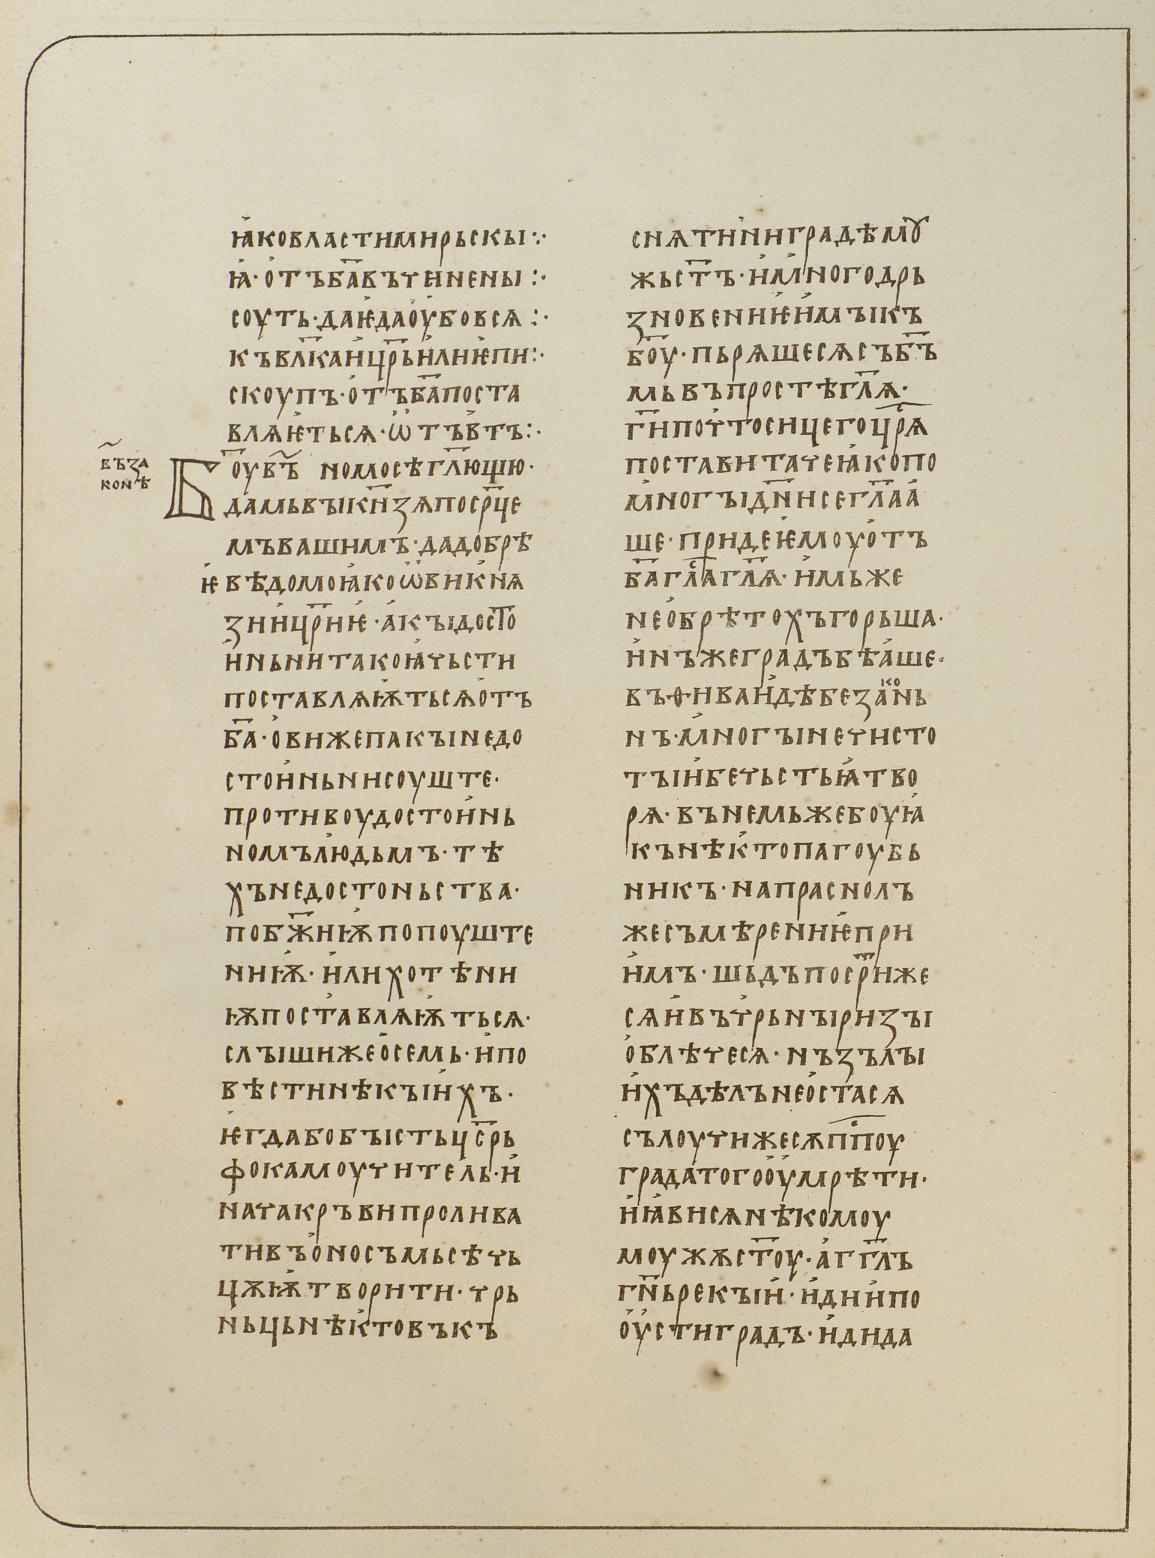 ꙗковластимирьскы჻
ꙗ·отъба҃вьчинены჻
соуть·даѥдаоубовсѧ჻
къвлк҃аицр҃ьилиѥпи჻
скоупъ·отъба҃поста
влꙗѥтьсѧ·ѿтъвт҃ъ჻
въза
конѣ
Боувъ҃номосѣгл҃ющю·
дамьвъıкн҃зѧпосрⷣце
мъвашимъ·дадобрѣ
ѥвѣдомоꙗкоѡ҃викнѧ
зиицр҃иѥ·акъıдост҃о
иньнитакоꙗчьсти
поставлꙗѭтьсѧотъ
ба҃·овижепакъıнедо
стоиньнисоуште·
противоудостоинь
номълюдьмъ·тѣ
хънедостоньства·
побж҃иѭпопоуште
ниѭ·илихотѣни
ѭпоставлꙗѭтьсѧ·
слъıшижеосемь·ипо
вѣстинѣкъıихъ·
ѥгдабобъıстьцс҃рь
фокамоучитель·и
начакръвипролива
тивъоносъмьсѣчь
цѫѭтворити·чрь
ньцьнѣктовъкъ
снѧтиниградѣмꙋ
жьст҃ъ·имногодрь
зновениѥимъıкъ
бо҃у·пьрѧщесѧсъбъ҃
мьвъпростѣгл҃ѧ·
ги҃почтосицегоцр҃ѧ
поставитачеꙗкопо
многъıдн҃исегл҃аа
ше·придеѥмоуотъ
ба҃гла҃гл҃ѧ·имьже
необрѣтохъгорьша·
инъжеградъбѣаше·
въѳиваидѣбезакⷪ҇нь
нъ·многъıнечисто
тъıибечьстьꙗтво
рѧ·вънемьжебоуꙗ
кънѣктопагоубь
никъ·напраснолъ
жесъмѣрениѥпри
имъ·шьдъпосри҃же
сѧивъчрьнъıризъı
облѣчесѧ·нъзълъı
ихъдѣлънеостасѧ
сълоучижесѧпп҃оу
градатогооумрѣти·
иꙗвисѧнѣкомоу
моужѧст҃оу·аггл҃ъ
гн҃ьрекъıи·идиипо
оустиградъ·идида